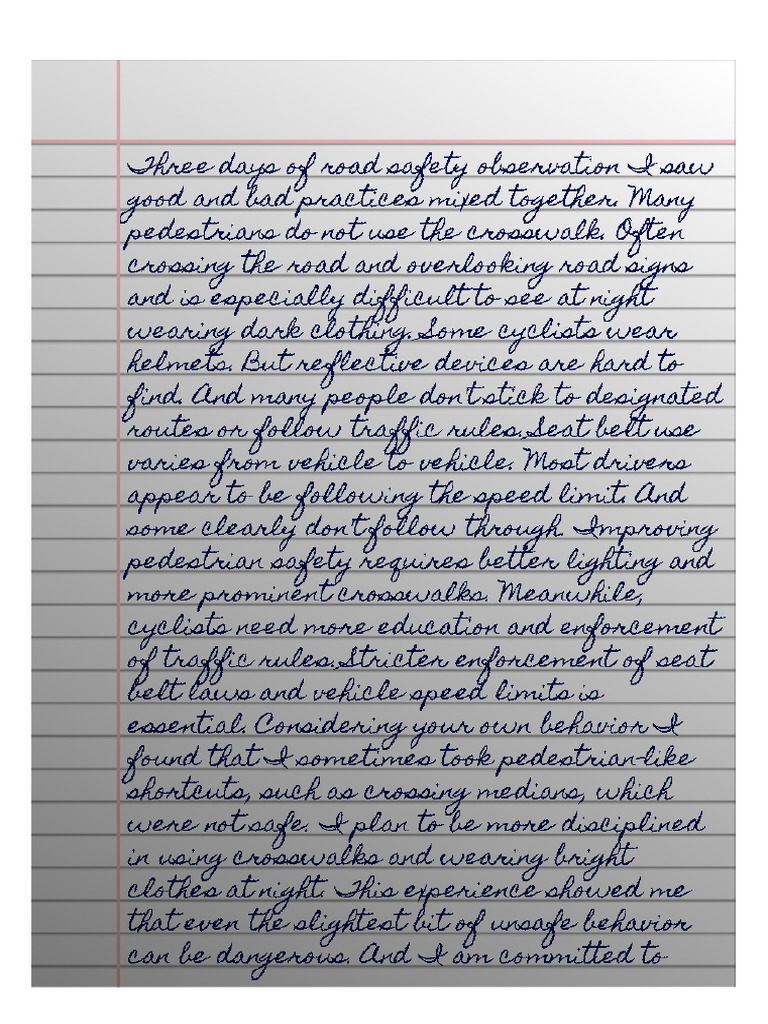 Three days of road safety observation I saw
good and bad practices mixed together. Many
pedestrians do not use the crosswalk. Often
crossing the road and overlooking road signs
and is especially difficult to see at night
wearing dark clothing. Some cyclists wear
helmets. But reflective devices are hard to
find. And many people don't stick to designated
routes or follow traffic rules. Seat belt use
varies from vehicle to vehicle. Most drivers
appear to be following the speed limit. And
some clearly don't follow through. Improving
pedestrian safety requires better lighting and
more prominent crosswalks. Meanwhile,
cyclists need more education and enforcement
of traffic rules. Stricter enforcement of seat
belt laws and vehicle speed limits is
essential. Considering your own behavior I
found that I sometimes took pedestrian-like
shortcuts, such as crossing medians, which
were not safe. I plan to be more disciplined
in using crosswalks and wearing bright
clothes at night. This experience showed me
that even the slightest bit of unsafe behavior
can be dangerous. And I am committed to